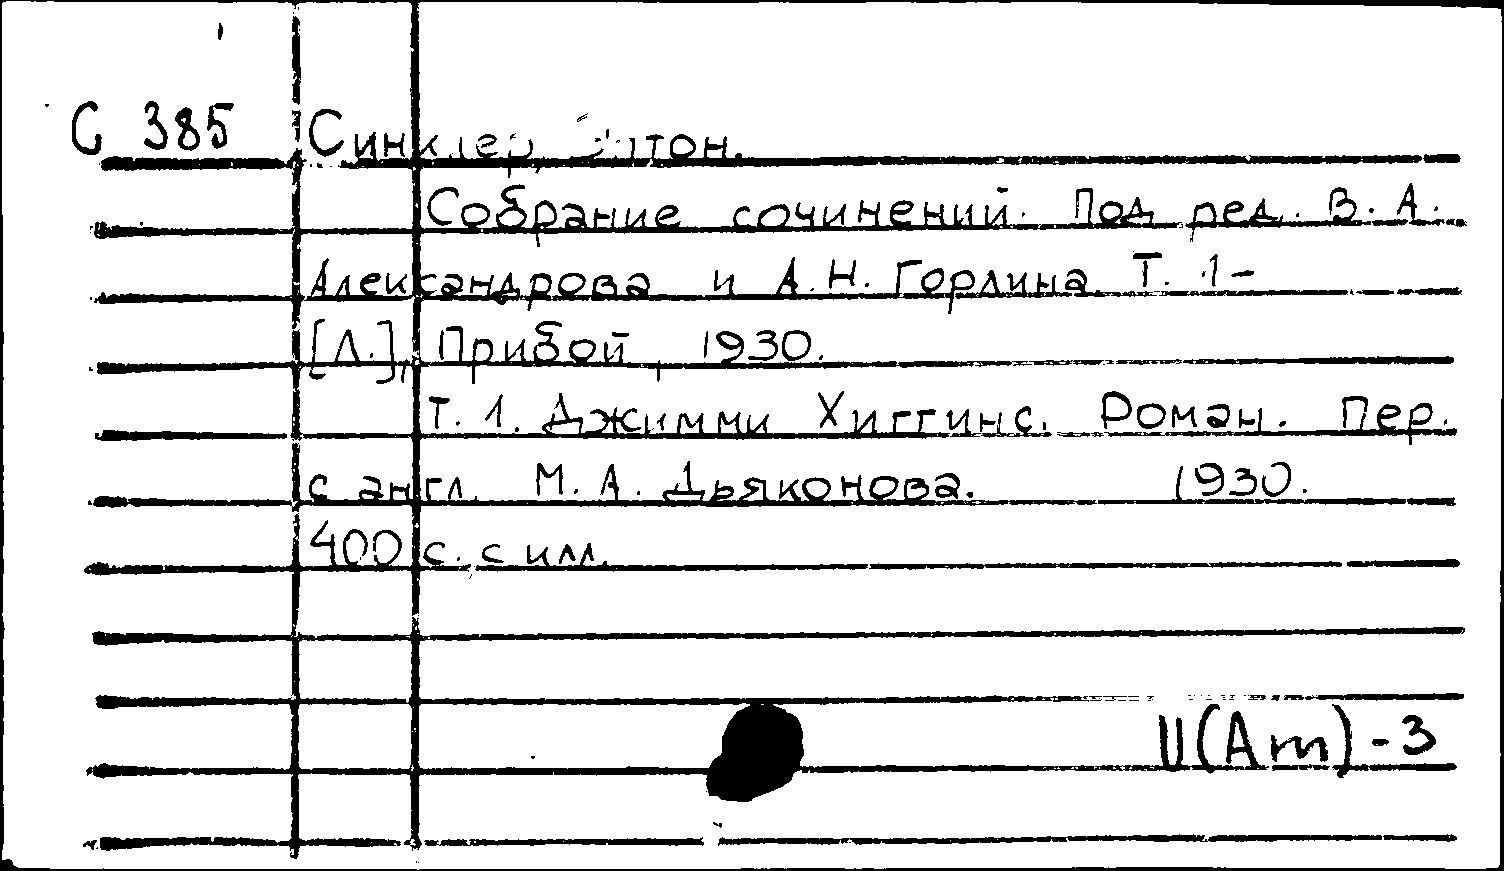 С 385 Синклер, Эптон.
Собрание сочинений. Под ред. В. А.
Александрова и А. Н. Горлина. Т. 1-
[Л.], Прибой, 1930.
Т. 1. Джимми Хиггинс. Роман. Пер.
с англ. М. А. Дьяконова. 1930.
400 с. с илл.
И(Ам)-3